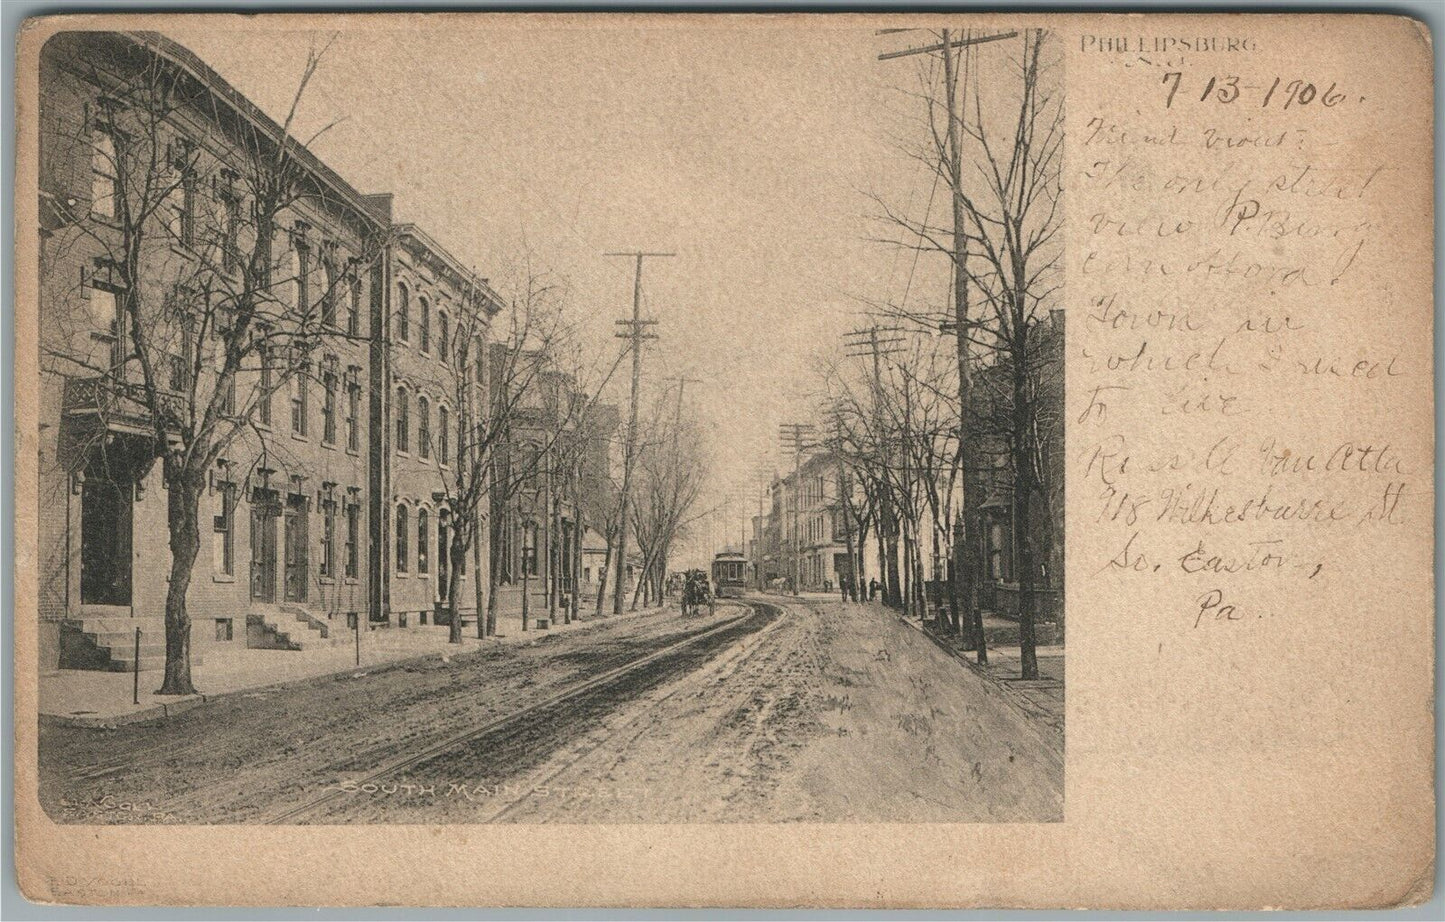 PHILLIPSBURG
N.J.
7-13-1906.
Friend
The only street
view P. Burg
can afford!
Town in
which I used
to live
Russell Van Atta
918 Wilkesbarre St.
So. Easton,
Pa.
SOUTH MAIN STREET
EASTON, PA.
EASTON, PA.